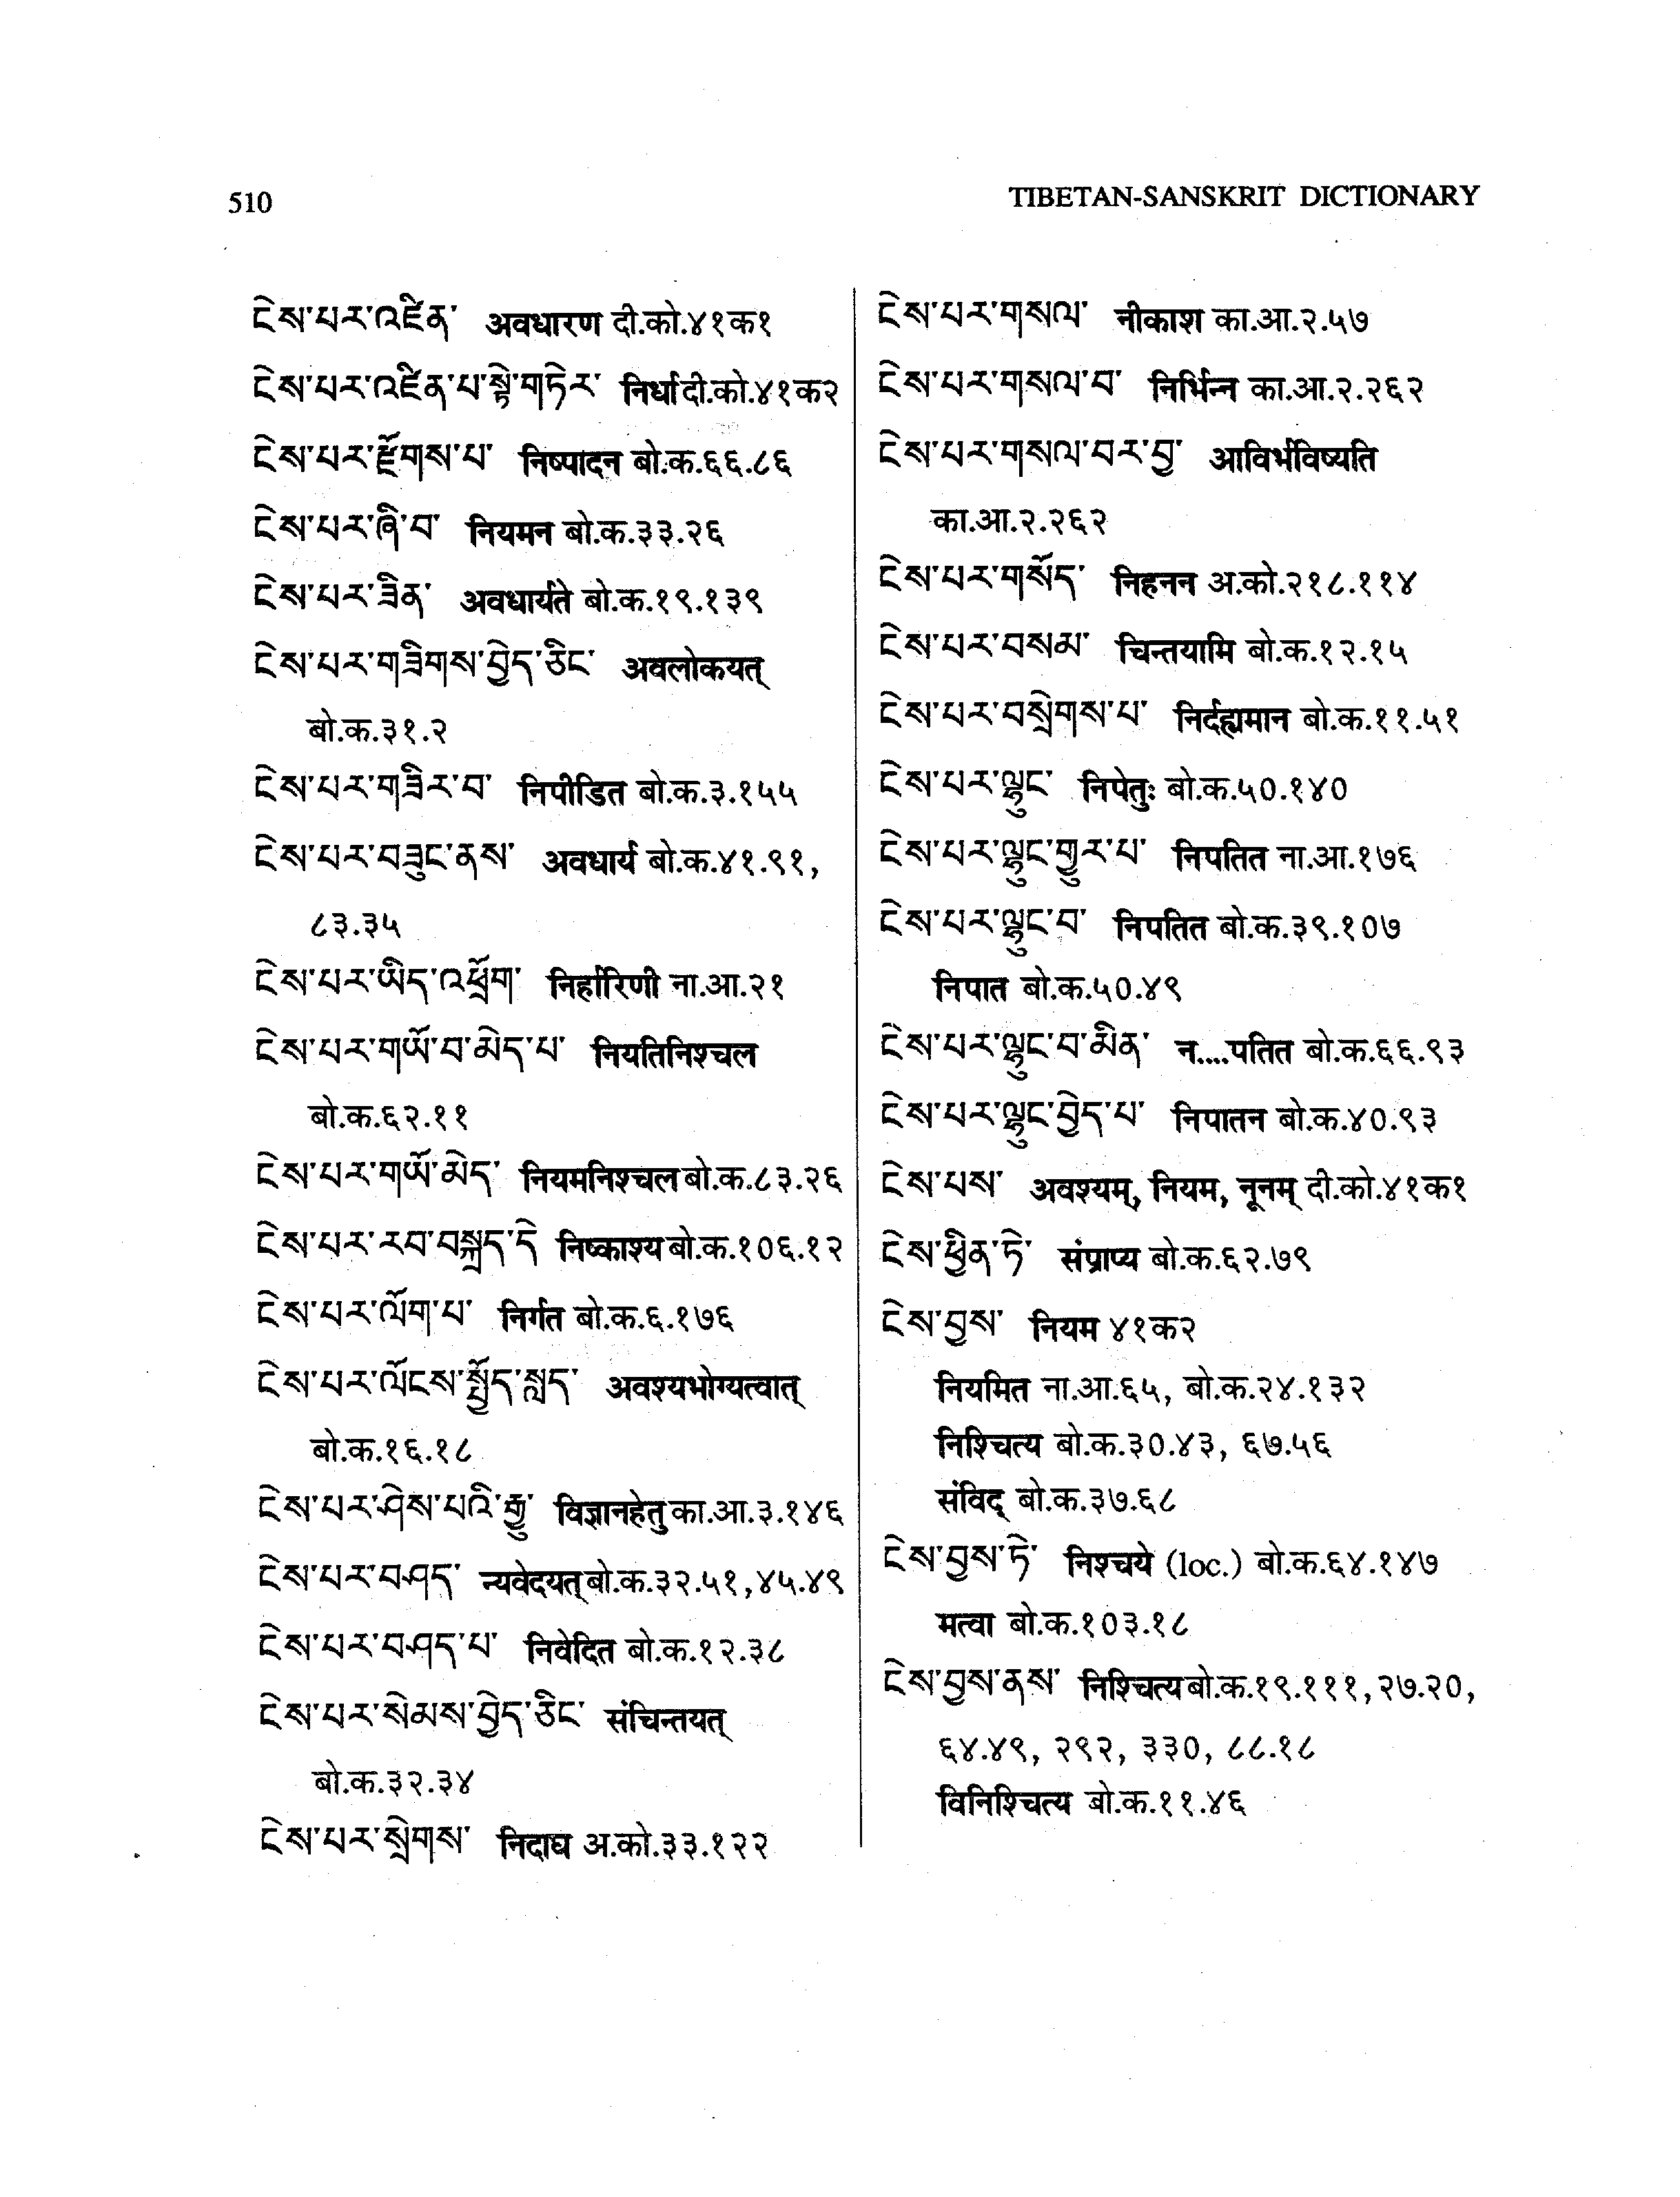 510
TIBETAN-SANSKRIT DICTIONARY
ངེས་པར་འཛིན་ अवधारण दी.को.४१क१
ངེས་པར་འཛིན་པ་སྟེ་གཏེར་ निर्धा दी.को.४१क२
ངེས་པར་རྫོགས་པ་ निष्पादन बो.क.६६.८६
ངེས་པར་ཞི་བ་ नियमन बो.क.३३.२६
ངེས་པར་ཟིན་ अवधार्यते बो.क.१९.१३९
ངེས་པར་གཟིགས་བྱེད་ཅིང་ अवलोकयत्
बो.क.३१.२
ངེས་པར་གཟིར་བ་ निपीडित बो.क.३.१५५
ངེས་པར་བཟུང་ནས་ अवधार्य बो.क.४१.९१,
८३.३५
ངེས་པར་ཡིད་འཕྲོག་ निर्हारिणी ना.आ.२१
ངེས་པར་གཡོ་བ་མེད་པ་ नियतिनिश्चल
बो.क.६२.११
ངེས་པར་གཡོ་མེད་ नियमनिश्चल बो.क.८३.२६
ངེས་པར་རབ་བསྐྲད་དེ་ निष्काश्य बो.क.१०६.१२
ངེས་པར་ལོག་པ་ निर्गत बो.क.६.१७६
ངེས་པར་ལོངས་སྤྱོད་སླད་ अवश्यभोग्यत्वात्
बो.क.१६.१८
ངེས་པར་ཤེས་པའི་རྒྱུ་ विज्ञानहेतु का.आ.३.१४६
ངེས་པར་བཤད་ न्यवेदयत् बो.क.३२.५१,४५.४९
ངེས་པར་བཤད་པ་ निवेदित बो.क.१२.३८
ངེས་པར་སེམས་བྱེད་ཅིང་ संचिन्तयत्
बो.क.३२.३४
ངེས་པར་སྲེགས་ निदाघ अ.को.३३.१२२
ངེས་པར་གསལ་ नीकाश का.आ.२.५७
ངེས་པར་གསལ་བ་ निर्भिन्न का.आ.२.२६२
ངེས་པར་གསལ་བར་བྱ་ आविर्भविष्यति
का.आ.२.२६२
ངེས་པར་གསོད་ निहनन अ.को.२१८.११४
ངེས་པར་བསམ་ चिन्तयामि बो.क.१२.१५
ངེས་པར་བསྲེགས་པ་ निर्दह्यमान बो.क.११.५१
ངེས་པར་ལྷུང་ निपेतुः बो.क.५०.१४०
ངེས་པར་ལྷུང་གྱུར་པ་ निपतित ना.आ.१७६
ངེས་པར་ལྷུང་བ་ निपतित बो.क.३९.१०७
निपात बो.क.५०.४९
ངེས་པར་ལྷུང་བ་མིན་ न....पतित बो.क.६६.९३
ངེས་པར་ལྷུང་བྱེད་པ་ निपातन बो.क.४०.९३
ངེས་པས་ अवश्यम्, नियम, नूनम् दी.को.४१क१
ངེས་ཕྱིན་ཏེ་ संप्राप्य बो.क.६२.७९
ངེས་བྱས་ नियम ४१क२
नियमित ना.आ.६५, बो.क.२४.१३२
निश्चित्य बो.क.३०.४३, ६७.५६
संविद् बो.क.३७.६८
ངེས་བྱས་ཏེ་ निश्चये (loc.) बो.क.६४.१४७
मत्वा बो.क.१०३.१८
ངེས་བྱས་ནས་ निश्चित्य बो.क.१९.१११,२७.२०,
६४.४९, २९२, ३३०, ८८.१८
विनिश्चित्य बो.क.११.४६